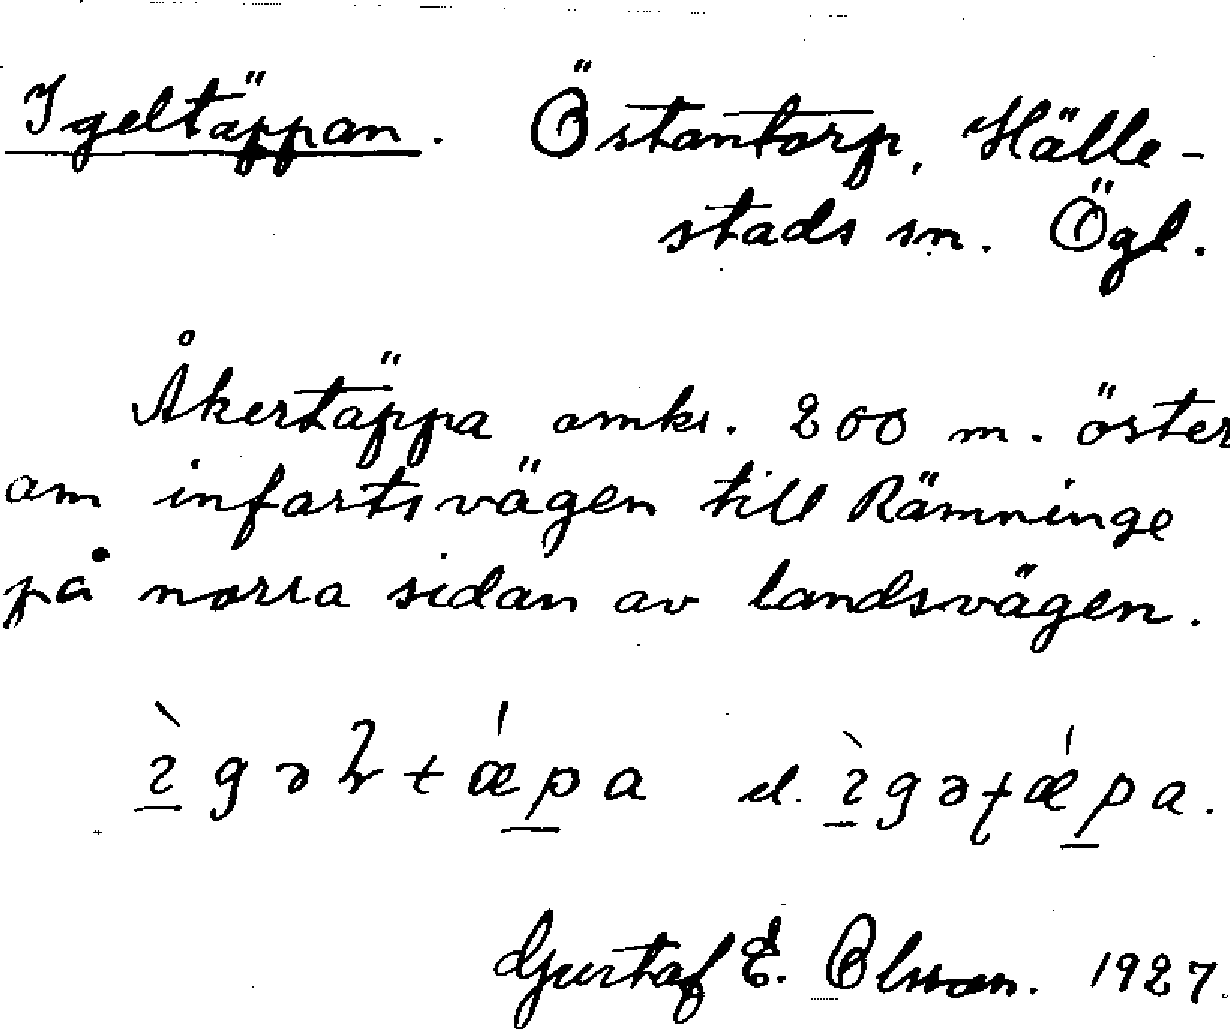 Igeltäppan. Östantorp, Hälle-
stads sn. Ögl.
Åkertäppa omkr. 200 m. öster
om infartsvägen till Rämninge
på norra sidan av landsvägen.
el.
Gustaf E. Olsson. 1927.